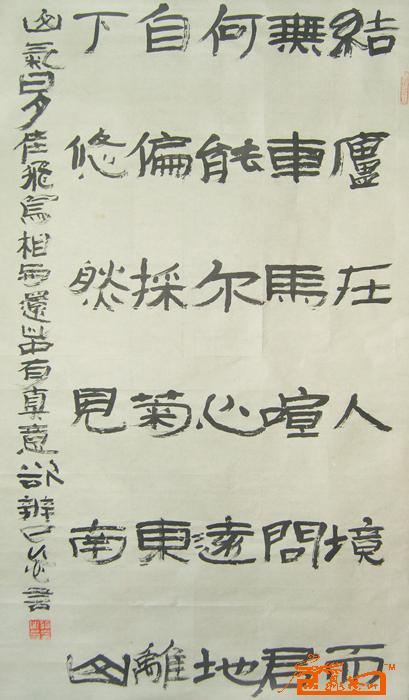 結廬在人境而
無車馬喧問君
何能尔心遠地
自偏採菊東離
下悠然見南山
山氣日夕佳飛鳥相与還此中有真意欲辨已忘言